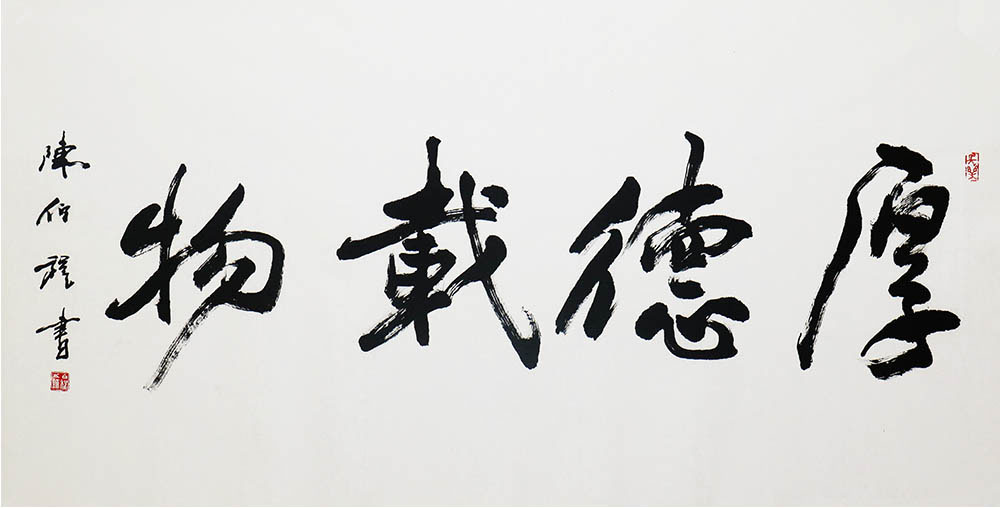 厚德載物
陳伯程書